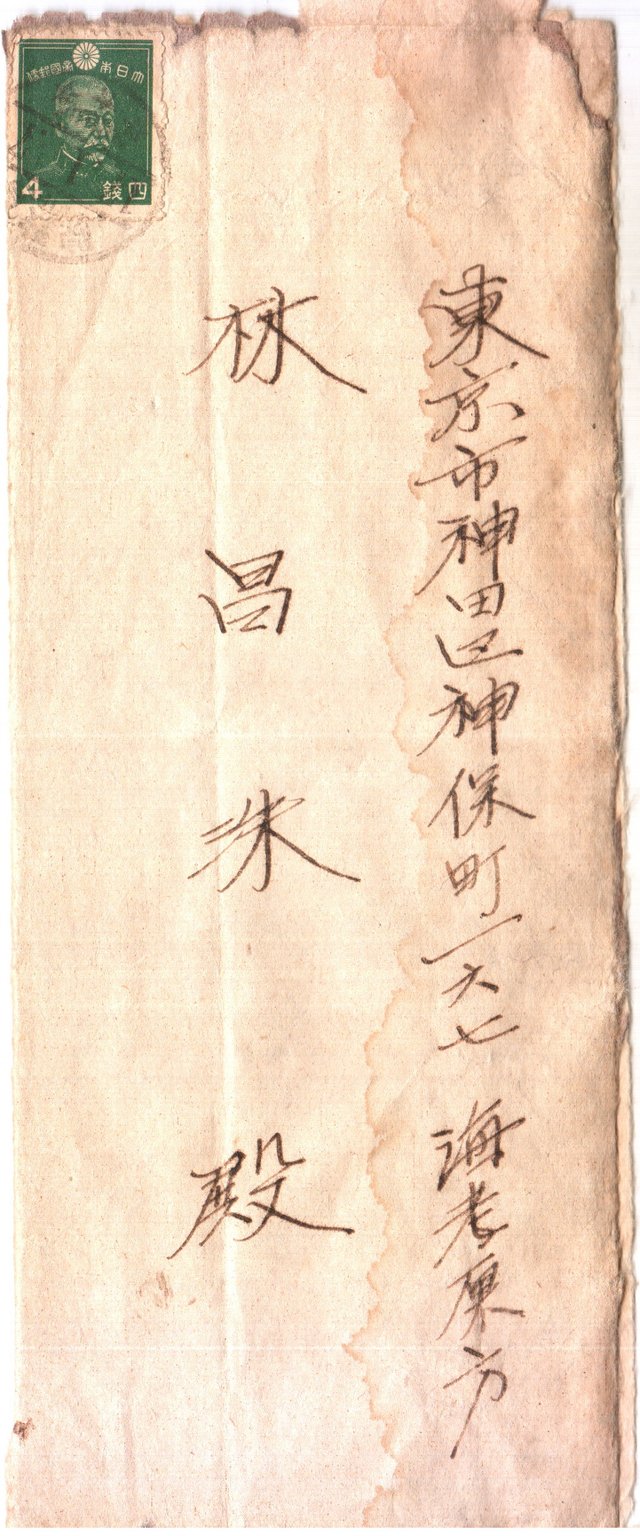 大日本帝國郵便
4
四錢
東京市神田区神保町一六七 海老原方
林昌洙殿